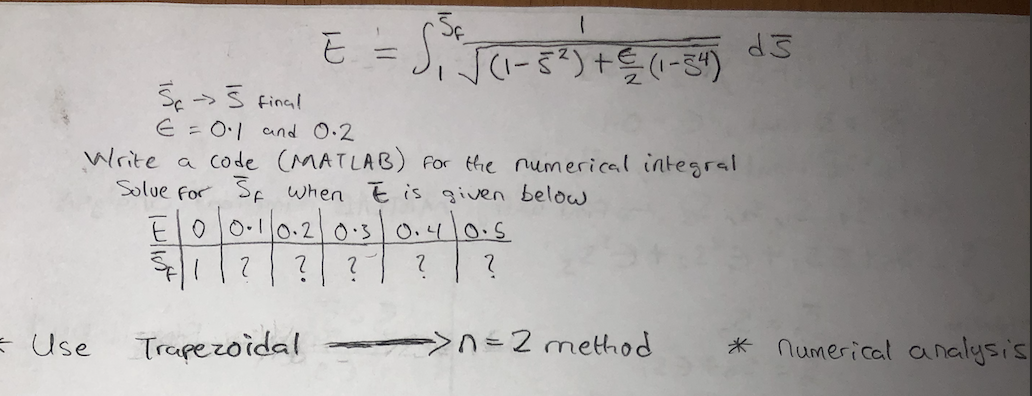 t̄ = ∫₁^S̄f 1/√((1-s̄²)+ε/2(1-s̄⁴)) ds̄
S̄f → S̄ final
ε = 0.1 and 0.2
Write a code (MATLAB) for the numerical integral
Solve for S̄f when t̄ is given below
t̄ | 0 | 0.1 | 0.2 | 0.3 | 0.4 | 0.5
S̄f | 1 | ? | ? | ? | ? | ?
* Use Trapezoidal → n=2 method * numerical analysis